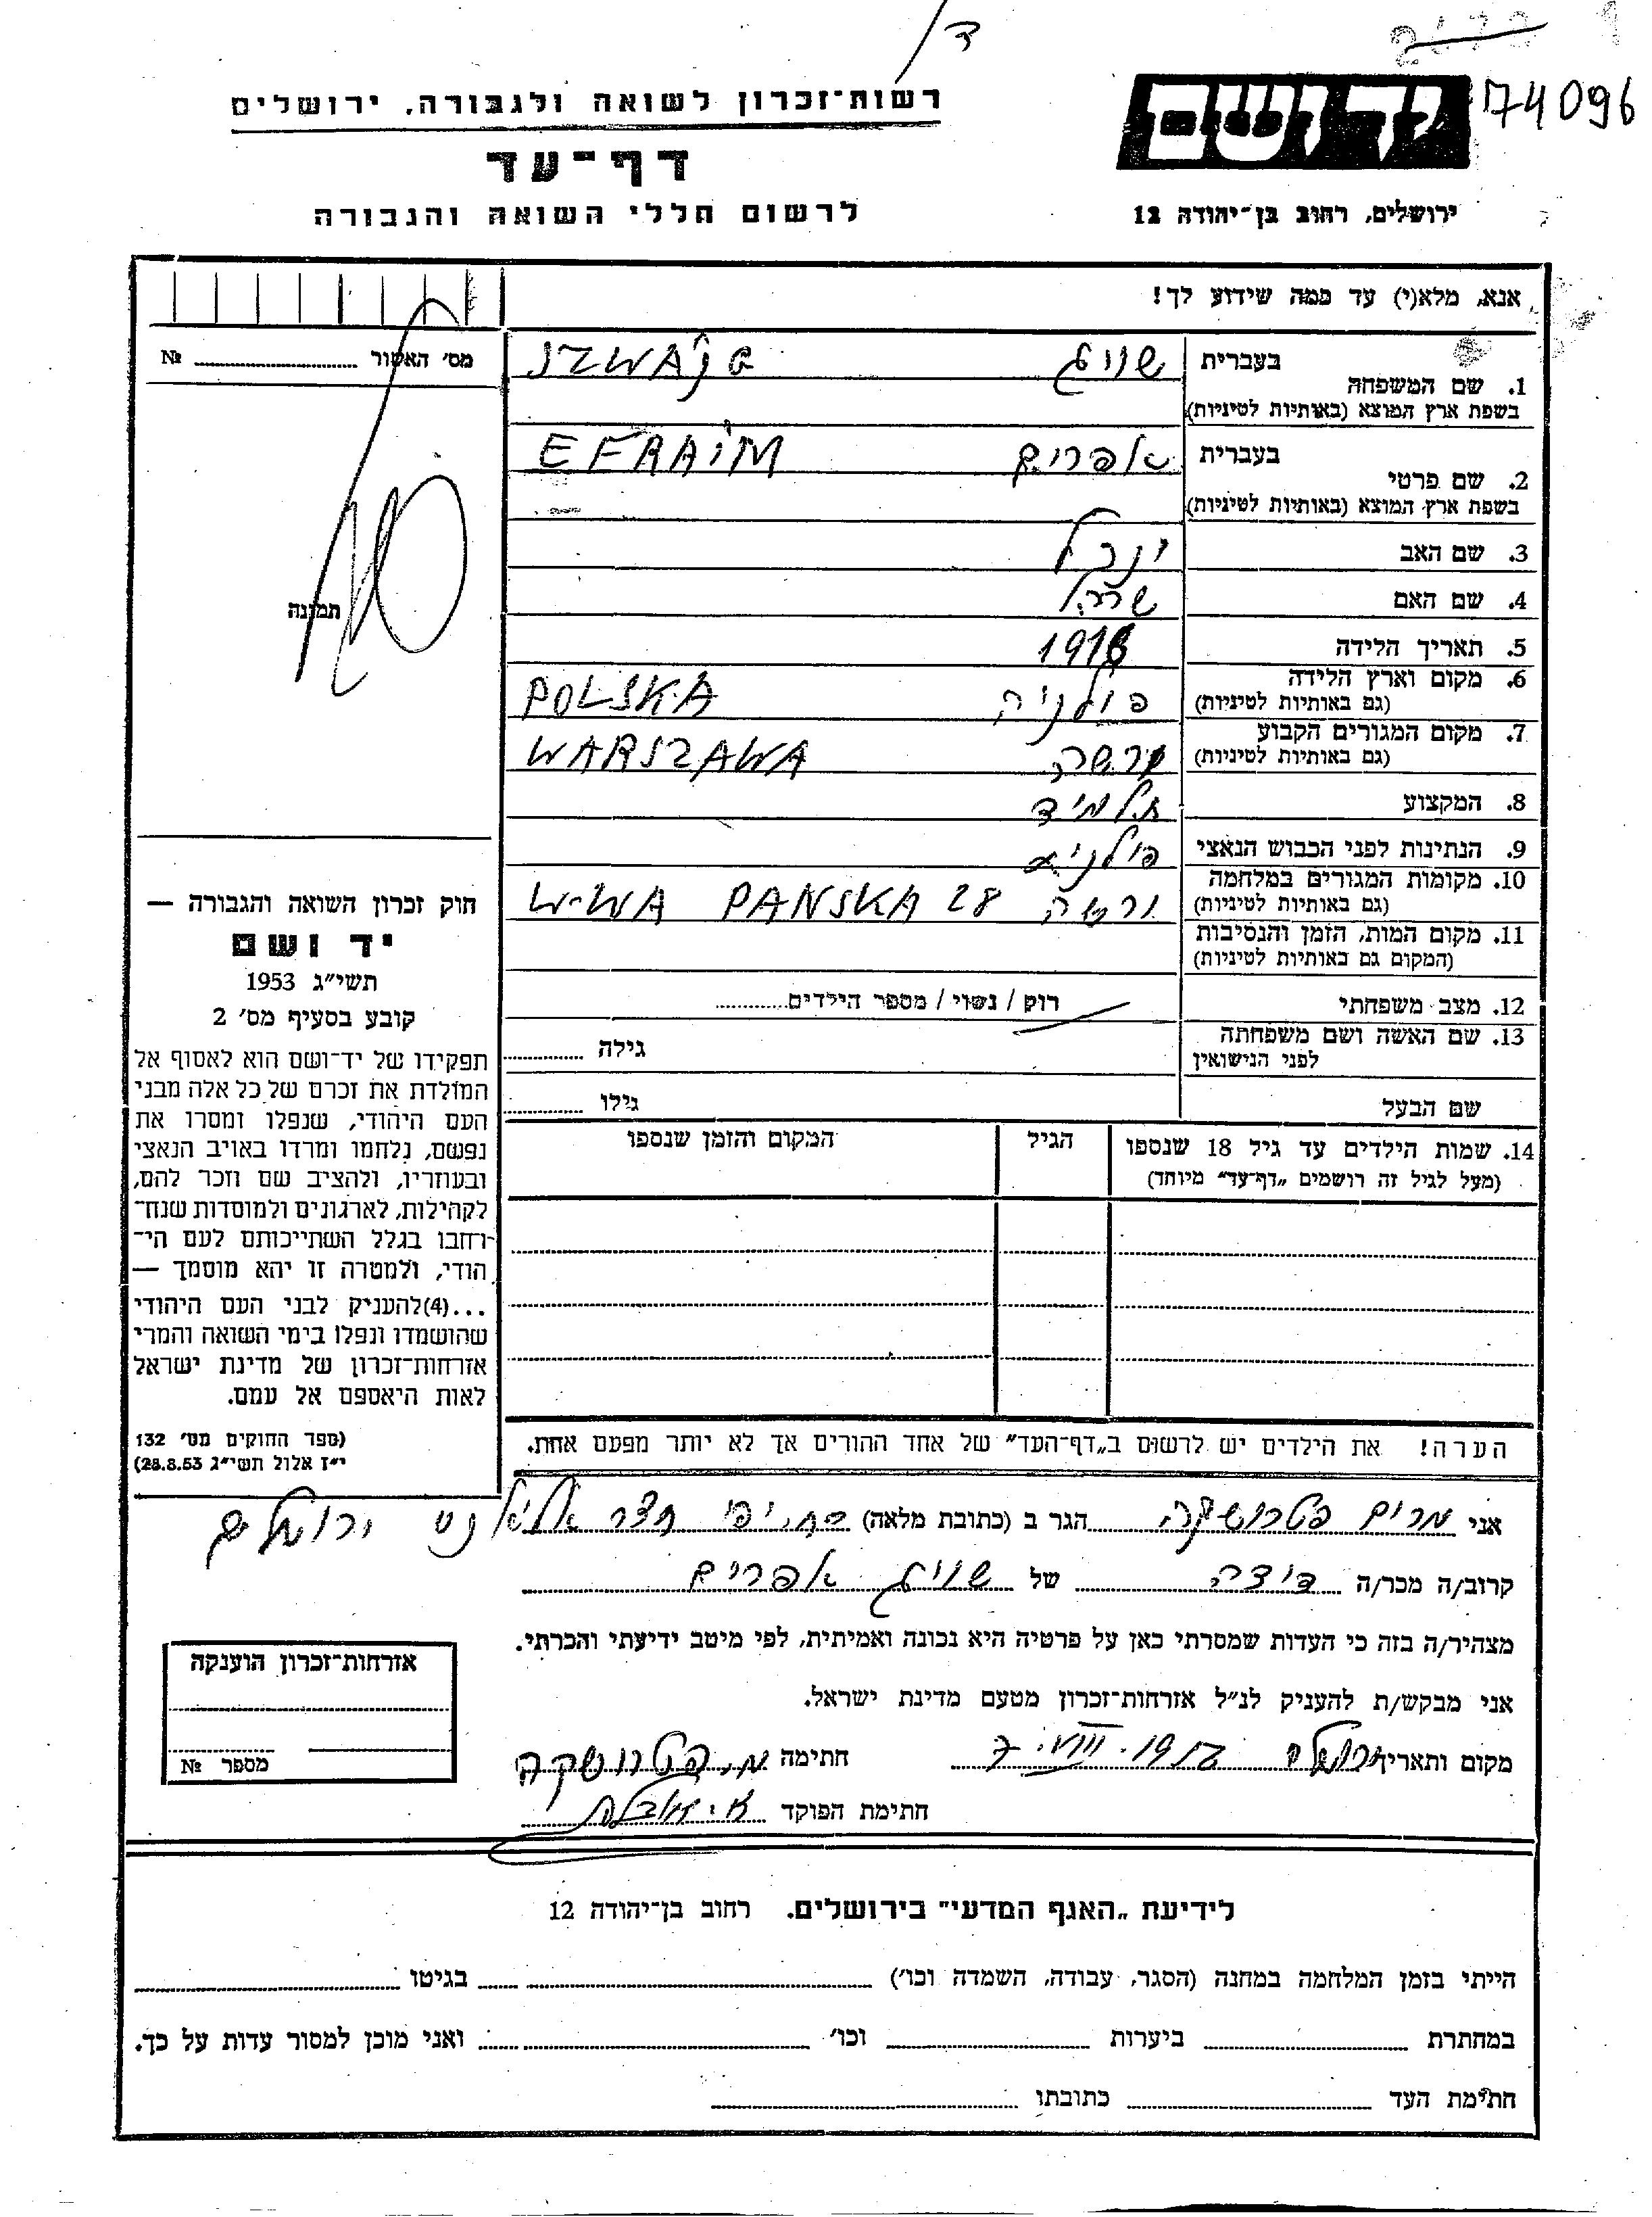 ד/
74096
רשות־זכרון לשואה ולגבורה, ירושלים
יד ושם
דף־עד
לרשום חללי השואה והגבורה
ירושלים, רחוב בן־יהודה 12
אנא, מלא(י) עד כמה שידוע לך!
מס' האשור № 
תמונה
1. שם המשפחה בעברית שוויג SZWAJG
בשפת ארץ המוצא (באותיות לטיניות)
2. שם פרטי בעברית אפרים EFRAIM
בשפת ארץ המוצא (באותיות לטיניות)
3. שם האב ינקל
4. שם האם
5. תאריך הלידה 1916
6. מקום וארץ הלידה פולניה POLSKA
(גם באותיות לטיניות)
7. מקום המגורים הקבוע ורשה WARSZAWA
(גם באותיות לטיניות)
8. המקצוע תלמיד
9. הנתינות לפני הכבוש הנאצי פולניא
10. מקומות המגורים במלחמה ורשה W-WA PANSKA 28
(גם באותיות לטיניות)
11. מקום המות, הזמן והנסיבות
(המקום גם באותיות לטיניות)
12. מצב משפחתי רוק / נשוי / מספר הילדים
13. שם האשה ושם משפחתה גילה
לפני הנישואין
שם הבעל גילו
14. שמות הילדים עד גיל 18 שנספו הגיל המקום והזמן שנספו
(מעל לגיל זה רושמים „דף־עד" מיוחד)
הערה! את הילדים יש לרשום ב„דף־העד" של אחד ההורים אך לא יותר מפעם אחת.
חוק זכרון השואה והגבורה —
יד ושם
תשי"ג 1953
קובע בסעיף מס' 2
תפקידו של יד־ושם הוא לאסוף אל
המולדת את זכרם של כל אלה מבני
העם היהודי, שנפלו ומסרו את
נפשם, נלחמו ומרדו באויב הנאצי
ובעוזריו, ולהציב שם וזכר להם,
לקהילות, לארגונים ולמוסדות שנח־
רחבו בגלל השתייכותם לעם הי־
הודי, ולמטרה זו יהא מוסמך —
...(4)להעניק לבני העם היהודי
שהושמדו ונפלו בימי השואה והמרי
אזרחות־זכרון של מדינת ישראל
לאות היאספם אל עמם.
(ספר החוקים מס' 132
י"ז אלול תשי"ג 28.8.53)
אני מרים פטרושקה הגר ב (כתובת מלאה) חצר ירושלים
קרוב/ה מכר/ה דודה של שוויג אפרים
מצהיר/ה בזה כי העדות שמסרתי כאן על פרטיה היא נכונה ואמיתית, לפי מיטב ידיעתי והכרתי.
אני מבקש/ת להעניק לנ"ל אזרחות־זכרון מטעם מדינת ישראל.
מקום ותאריך 7. VIII. חתימה מ. פטרושקה
חתימת הפוקד
אזרחות־זכרון הוענקה
מספר №
לידיעת „האגף המדעי" בירושלים. רחוב בן־יהודה 12
הייתי בזמן המלחמה במחנה (הסגר, עבודה, השמדה וכו') בגיטו
במחתרת ביערות וכו' ואני מוכן למסור עדות על כך.
חתימת העד כתובתו